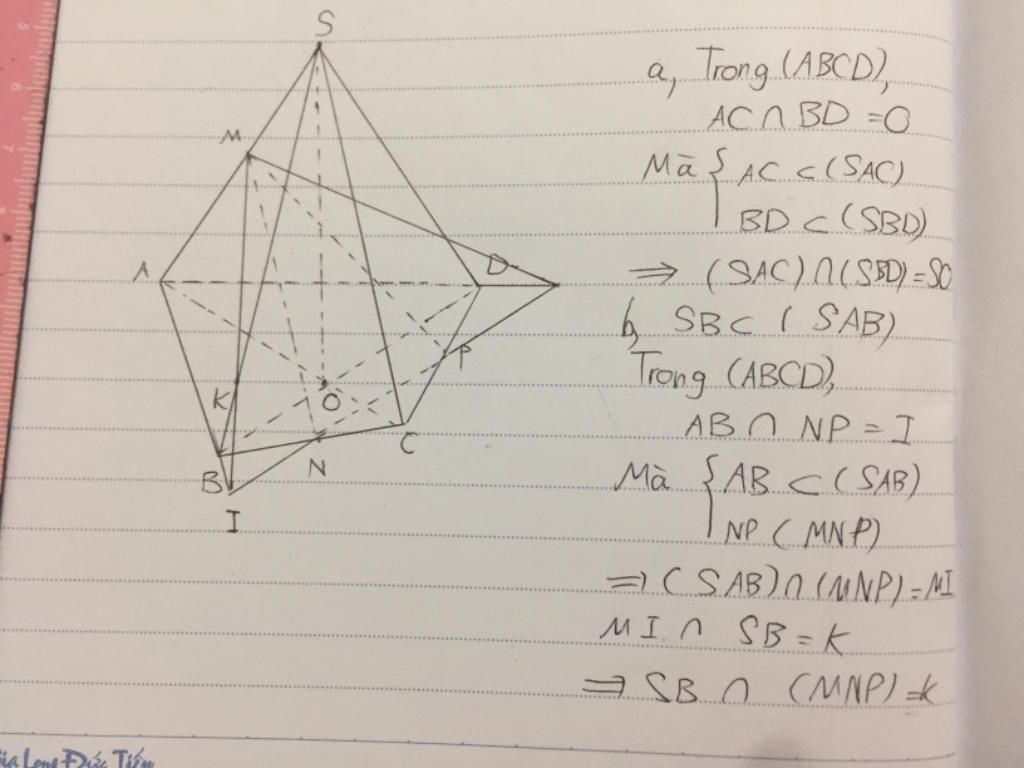 S
M
A
D
K
O
P
B
N
C
I
a, Trong (ABCD),
AC ∩ BD = O
Mà { AC ⊂ (SAC)
BD ⊂ (SBD)
⇒ (SAC) ∩ (SBD) = SO
b, SB ⊂ ( SAB)
Trong (ABCD),
AB ∩ NP = I
Mà { AB ⊂ (SAB)
NP ( MNP)
⇒ ( SAB) ∩ (MNP) = MI
MI ∩ SB = K
⇒ SB ∩ (MNP) = K
Long Đức Tiến
5
6
7